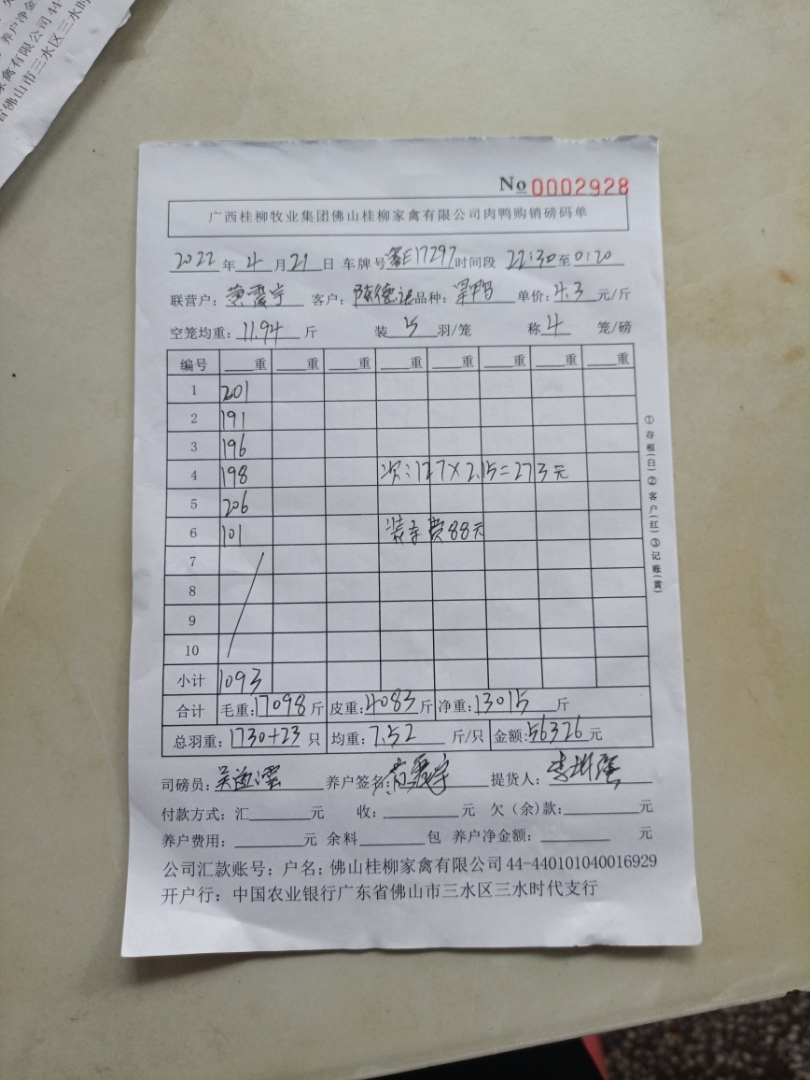 养户净金
家禽有限公司44
省佛山市三水区三水时
No 0002928
广西桂柳牧业集团佛山桂柳家禽有限公司肉鸭购销磅码单
2022年4月21日 车牌号粤E17297时间段22:30至01:20
联营户: 黄 宇 客户: 陈德 品种: 单价:4.3元/斤
空笼均重:11.94斤 装5羽/笼 称4笼/磅
编号 重 重 重 重 重 重 重 重
1 201
2 191
3 196
4 198 次:127×2.15=273元
5 206
6 101 装车费88元
7
8
9
10
小计 1093
合计 毛重:17098斤 皮重:4083斤 净重:13015斤
总羽重:1730+23只 均重:7.52斤/只 金额:56326元
司磅员: 养户签名: 提货人:
付款方式:汇 元 收: 元 欠(余)款: 元
养户费用: 元 余料 包 养户净金额: 元
公司汇款账号:户名:佛山桂柳家禽有限公司44-440101040016929
开户行:中国农业银行广东省佛山市三水区三水时代支行
①存根(白)②客户(红)③记账(黄)